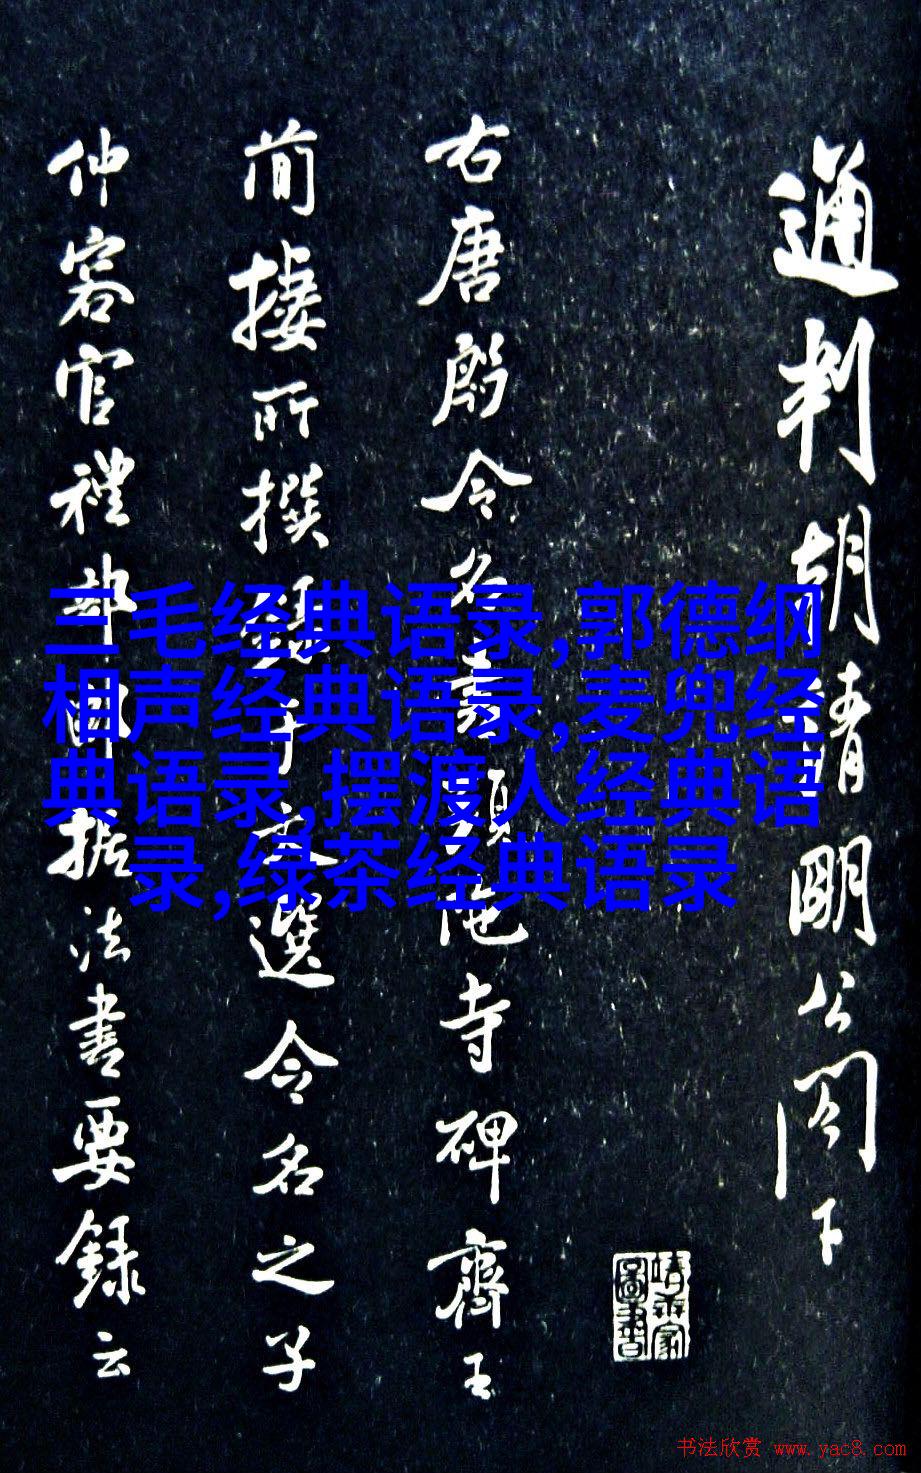 通判胡靖明公閣下
右唐殷令名書頭陁寺碑齊王
簡棲所撰錄于文選令名之子
仲容官禮部郎據法書要録云
三毛经典语录,郭德纲
相声经典语录,麦兜经
典语录,摆渡人经典语
录,绿茶经典语录
书法欣赏 www.yac8.com